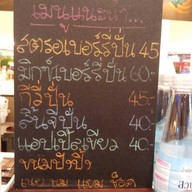 เมนูแนะนำ...
สตรอเบอร์รี่ปั่น 45
มิกซ์เบอร์รี่ปั่น 60.-
กีวี่ปั่น 45.-
ลิ้นจี่ปั่น 40.-
แอปเปิ้ลเขียว 40.-
ขนมปังปิ้ง
เนย นม แยม ช็อค